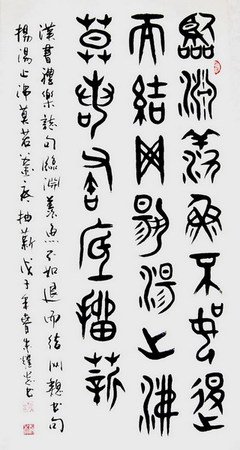 臨淵羨魚不如退
而結网揚湯止沸
莫若釜底抽薪
漢書禮樂誌句臨淵羨魚不如退而結网魏書句
揚湯止沸莫若釜底抽薪戊子年